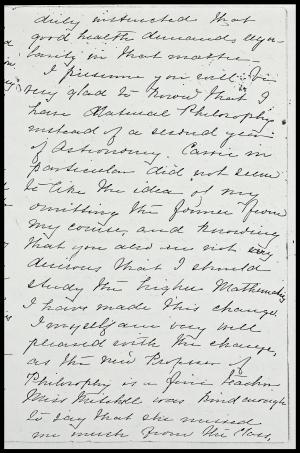 duly instructed that
good health demands regu-
larity in that matter.
I presume you will be
very glad to know that I
have Natural Philosophy
instead of a second year
of Astronomy. Carrie in
particular did not seem
to like the idea of my
omitting the former from
my course, and knowing
that you also are not very
desirous that I should
study the higher Mathematics
I have made this change.
I myself am very well
pleased with the change,
as the new Professor of
Philosophy is a fine teacher.
Miss Mitchell was kind enough
to say that she missed
me much from the Class,